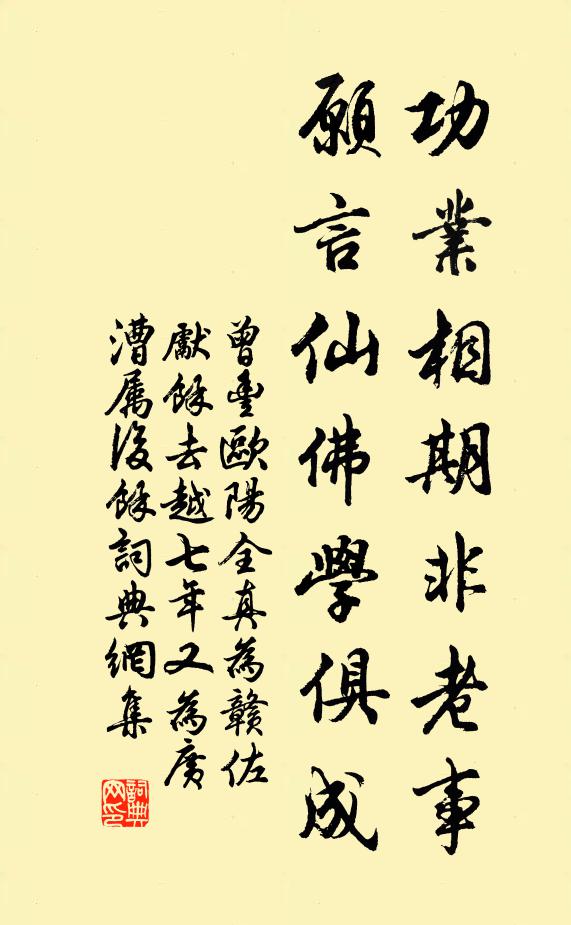 功業相期非老事
願言仙佛學俱成
曾豊歐陽全真為贛佐
獻餘去越七年又為廣
漕属後餘詞典網集
詞典網印